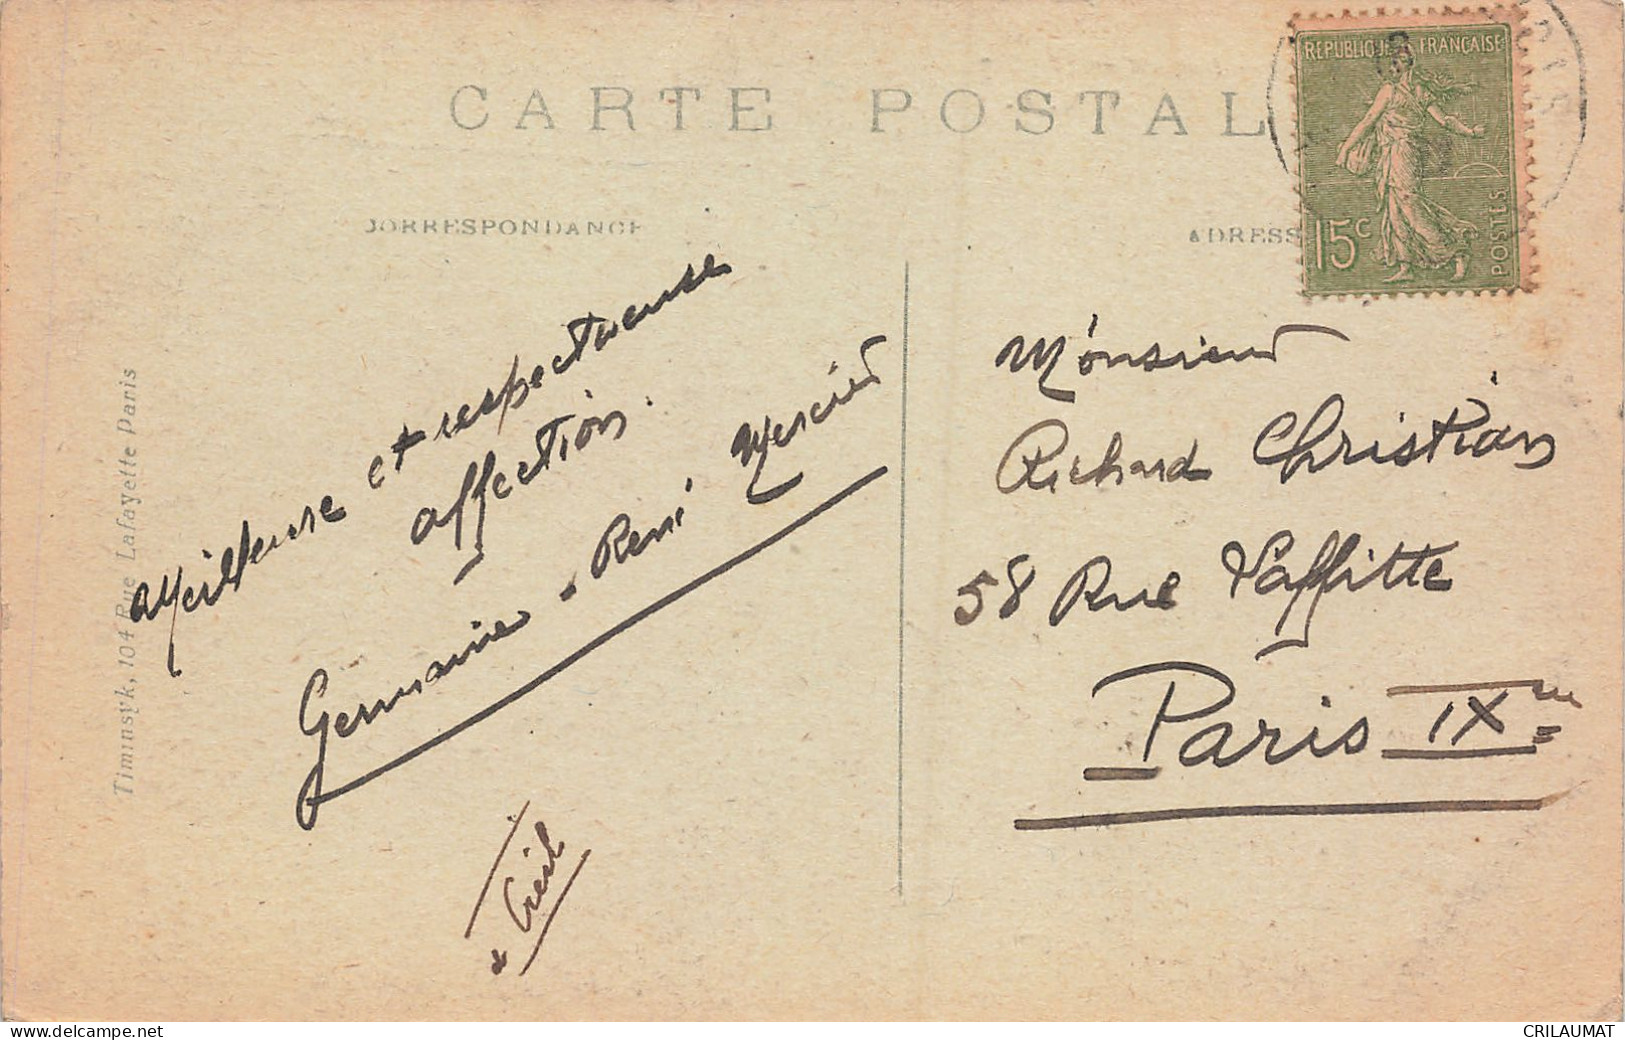 CARTE POSTAL
CORRESPONDANCE
ADRESS
REPUBLIQUE FRANÇAISE
15c
POSTES
Meilleure et respectueuse
affection.
Germaine - René Mercier
Creil
Monsieur
Richard Christian
58 Rue Laffitte
Paris IXme
Timinsyk, 104 Rue Lafayette Paris
www.delcampe.net
CRILAUMAT